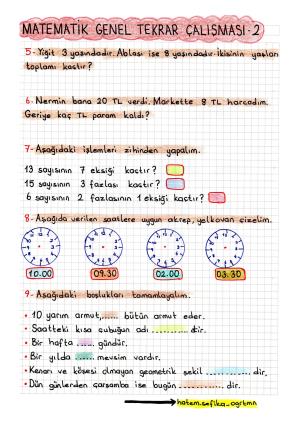 MATEMATİK GENEL TEKRAR ÇALIŞMASI-2
5- Yiğit 3 yaşındadır. Ablası ise 8 yaşındadır. İkisinin yaşları
toplamı kaçtır?
6. Nermin bana 20 TL verdi. Markette 8 TL harcadım.
Geriye kaç TL param kaldı?
7- Aşağıdaki işlemleri zihinden yapalım.
13 sayısının 7 eksiği kaçtır?
15 sayısının 3 fazlası kaçtır?
6 sayısının 2 fazlasının 1 eksiği kaçtır?
8- Aşağıda verilen saatlere uygun akrep, yelkovan çizelim.
10.00 09.30 02.00 03.30
9- Aşağıdaki boşlukları tamamlayalım.
• 10 yarım armut, ..... bütün armut eder.
• Saatteki kısa çubuğun adı .......... dir.
• Bir hafta ..... gündür.
• Bir yılda ..... mevsim vardır.
• Kenarı ve köşesi olmayan geometrik şekil .......... dir.
• Dün günlerden çarşamba ise bugün .......... dir.
hatem.sefika_ogrtmn